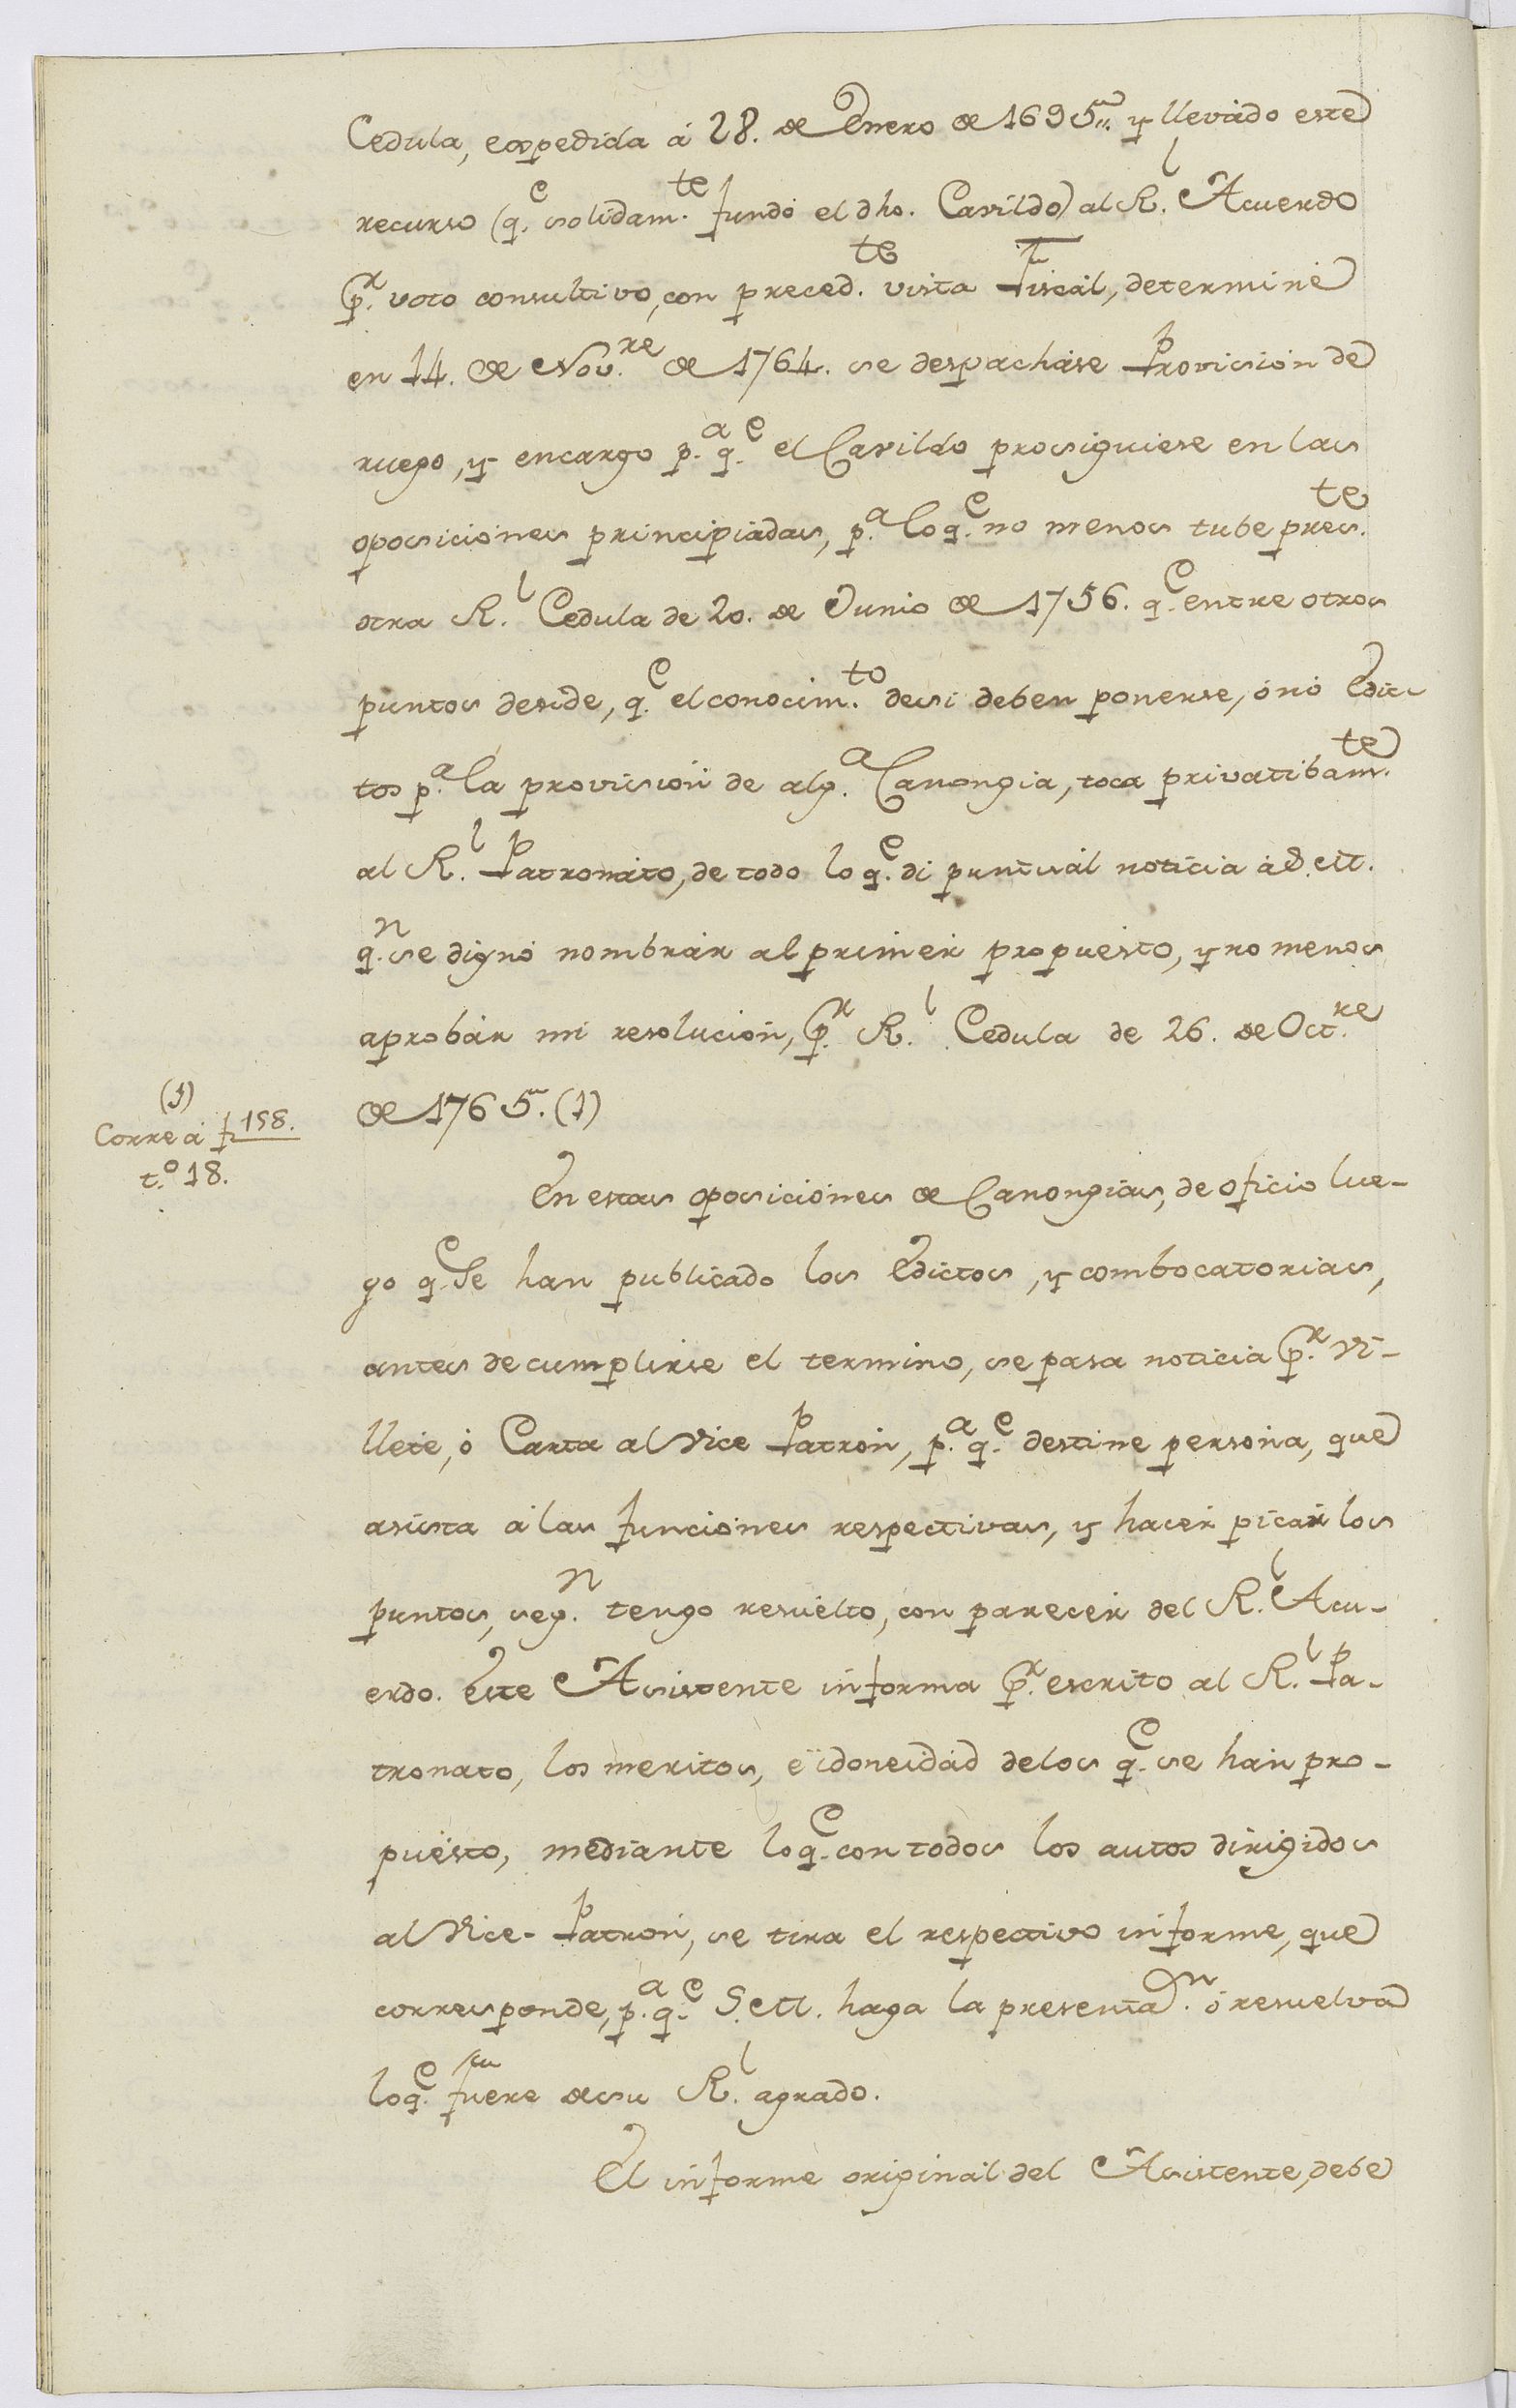 Cedula, expedida á 28. de Enero de 1695,, y llevado este
recurso (q.e solidam.te fundó el dho. Cavildo) al R.l Acuerdo
p.r voto consultivo, con preced.te vista Fiscal, determiné
en 14. de Nov.re de 1764. se despachàse Provision de
ruego, y encargo p.a q.e el Cavildo prosiguiese en las
oposiciones principiadas, p.a lo q.e no menos tube pres.te
otra R.l Cedula de 20. de Junio de 1756. q.e entre otros
puntos deside, q.e el conocim.to de si deben ponerse, ó nó Edic-
tos p.a la provision de alg.a Canongia, toca privatibam.te
al R.l Patronato, de todo lo q.e di puntual noticia á S.M.
q.n se dignó nombrar al primer propuesto, y no menos
aprobàr mi resolucion, p.r R.l Cedula de 26. de Oct.re
de 1765. (1)
(1)
Corre á f 158.
t.o 18.
En estas oposiciones de Canongias, de oficio lue-
go q.e Se han publicado los Edictos, y combocatorias,
antes de cumplirse el termino, se pasa noticia p.r Vi-
llete, ó Carta al Vice Patron, p.a q.e destine persona, que
asista á las funciones respectivas, y hacer picar los
puntos, seg.n tengo resuelto, con parecer del R.l Acu-
erdo. Este Asistente informa p.r escrito al R.l Pa-
tronato, los meritos, e idoneidad de los q.e se han pro-
puesto, mediante lo q.e con todos los autos dirigidos
al Vice-Patron, se tira el respectivo informe, que
corresponde, p.a q.e S.M. haga la presentaz.n ó resuelva
lo q.e fuere de su R.l agrado.
El informe original del Asistente, debe